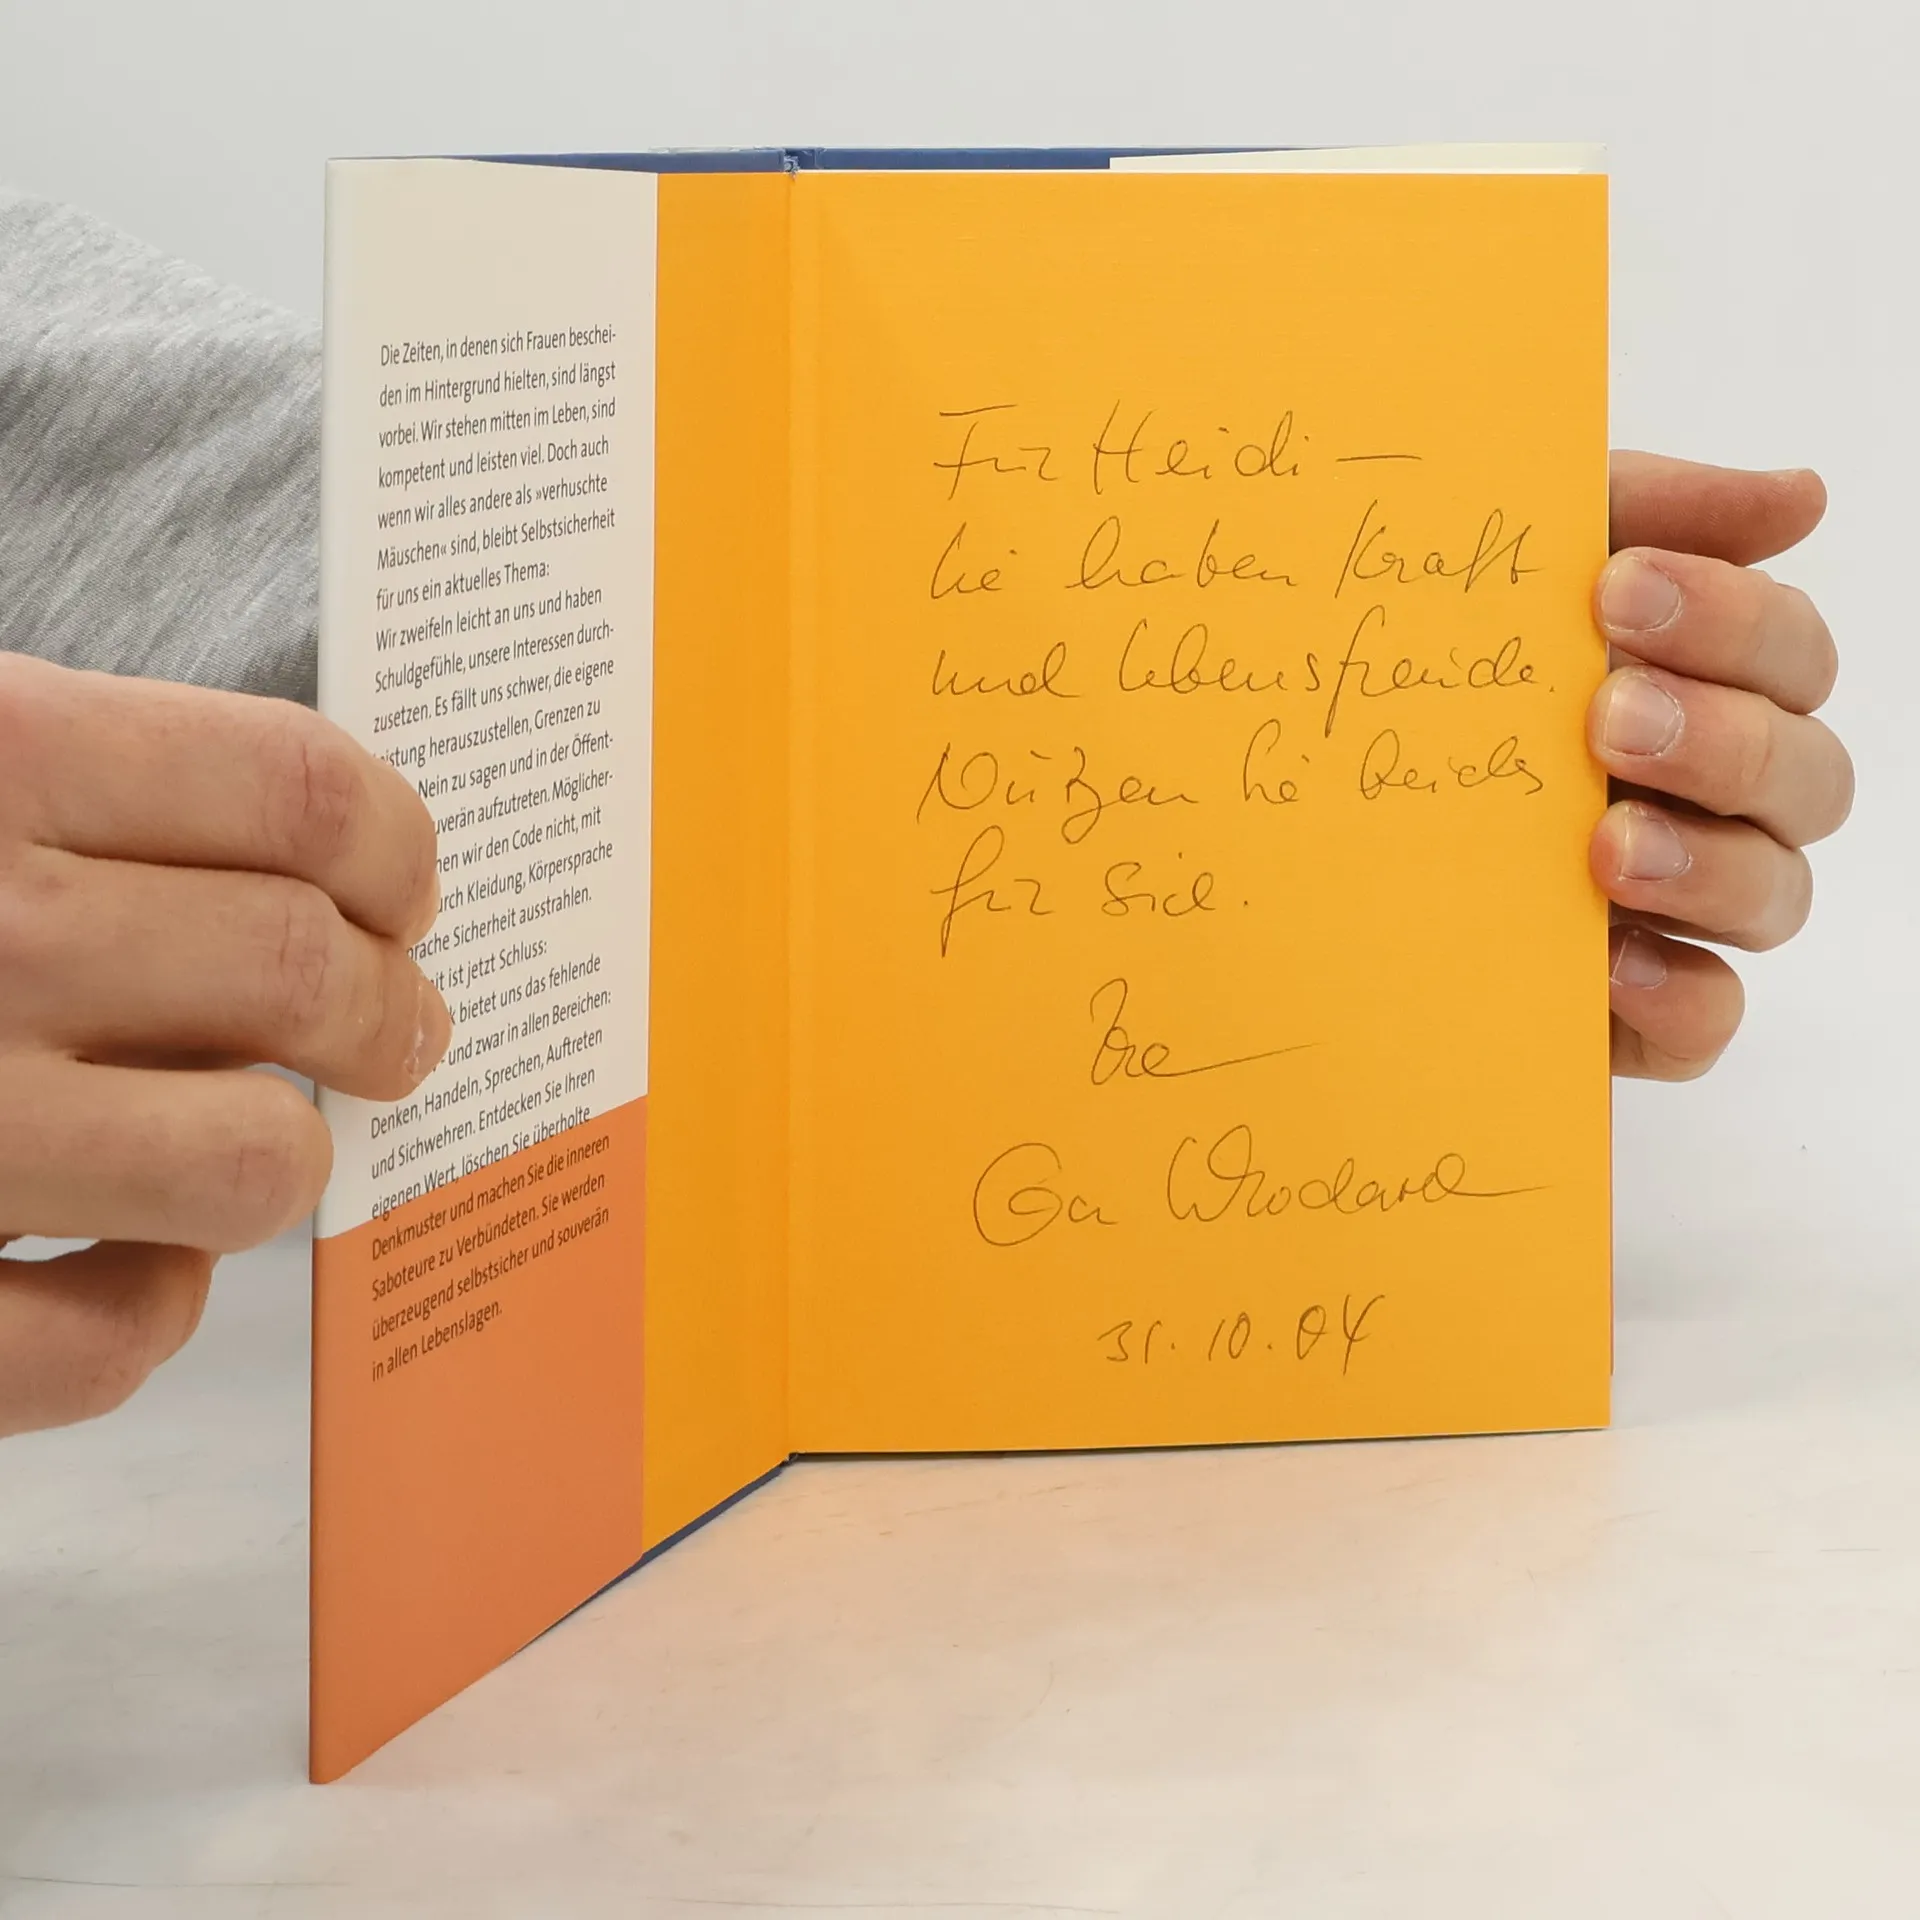 Die Zeiten, in denen sich Frauen beschei-
den im Hintergrund hielten, sind längst
vorbei. Wir stehen mitten im Leben, sind
kompetent und leisten viel. Doch auch
wenn wir alles andere als »verhuschte
Mäuschen« sind, bleibt Selbstsicherheit
für uns ein aktuelles Thema:
Wir zweifeln leicht an uns und haben
Schuldgefühle, unsere Interessen durch-
zusetzen. Es fällt uns schwer, die eigene
eistung herauszustellen, Grenzen zu
Nein zu sagen und in der Öffent-
uverän aufzutreten. Möglicher-
nen wir den Code nicht, mit
urch Kleidung, Körpersprache
prache Sicherheit ausstrahlen.
it ist jetzt Schluss:
k bietet uns das fehlende
- und zwar in allen Bereichen:
Denken, Handeln, Sprechen, Auftreten
und Sichwehren. Entdecken Sie Ihren
eigenen Wert, löschen Sie überholte
Denkmuster und machen Sie die inneren
Saboteure zu Verbündeten. Sie werden
überzeugend selbstsicher und souverän
in allen Lebenslagen.
Für Heidi —
Sie haben Kraft
und Lebensfreude.
Nützen Sie beides
für Sich.
Ihre
Eva Wlodarek
31.10.04